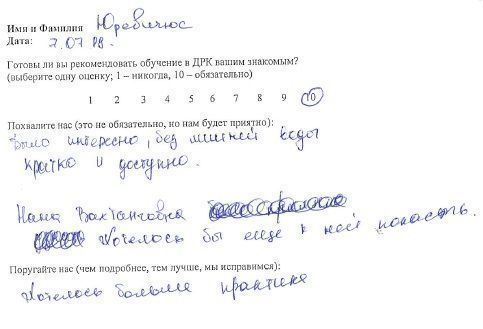 Имя и Фамилия Юревичюс
Дата: 7.07.18.
Готовы ли вы рекомендовать обучение в ДРК вашим знакомым?
(выберите одну оценку; 1 – никогда, 10 – обязательно)
1 2 3 4 5 6 7 8 9 10
Похвалите нас (это не обязательно, но нам будет приятно):
Было интересно, без лишней воды
кратко и доступно.
Нана Вахтанговна
Хотелось бы еще к ней попасть.
Поругайте нас (чем подробнее, тем лучше, мы исправимся):
Хотелось больше практики